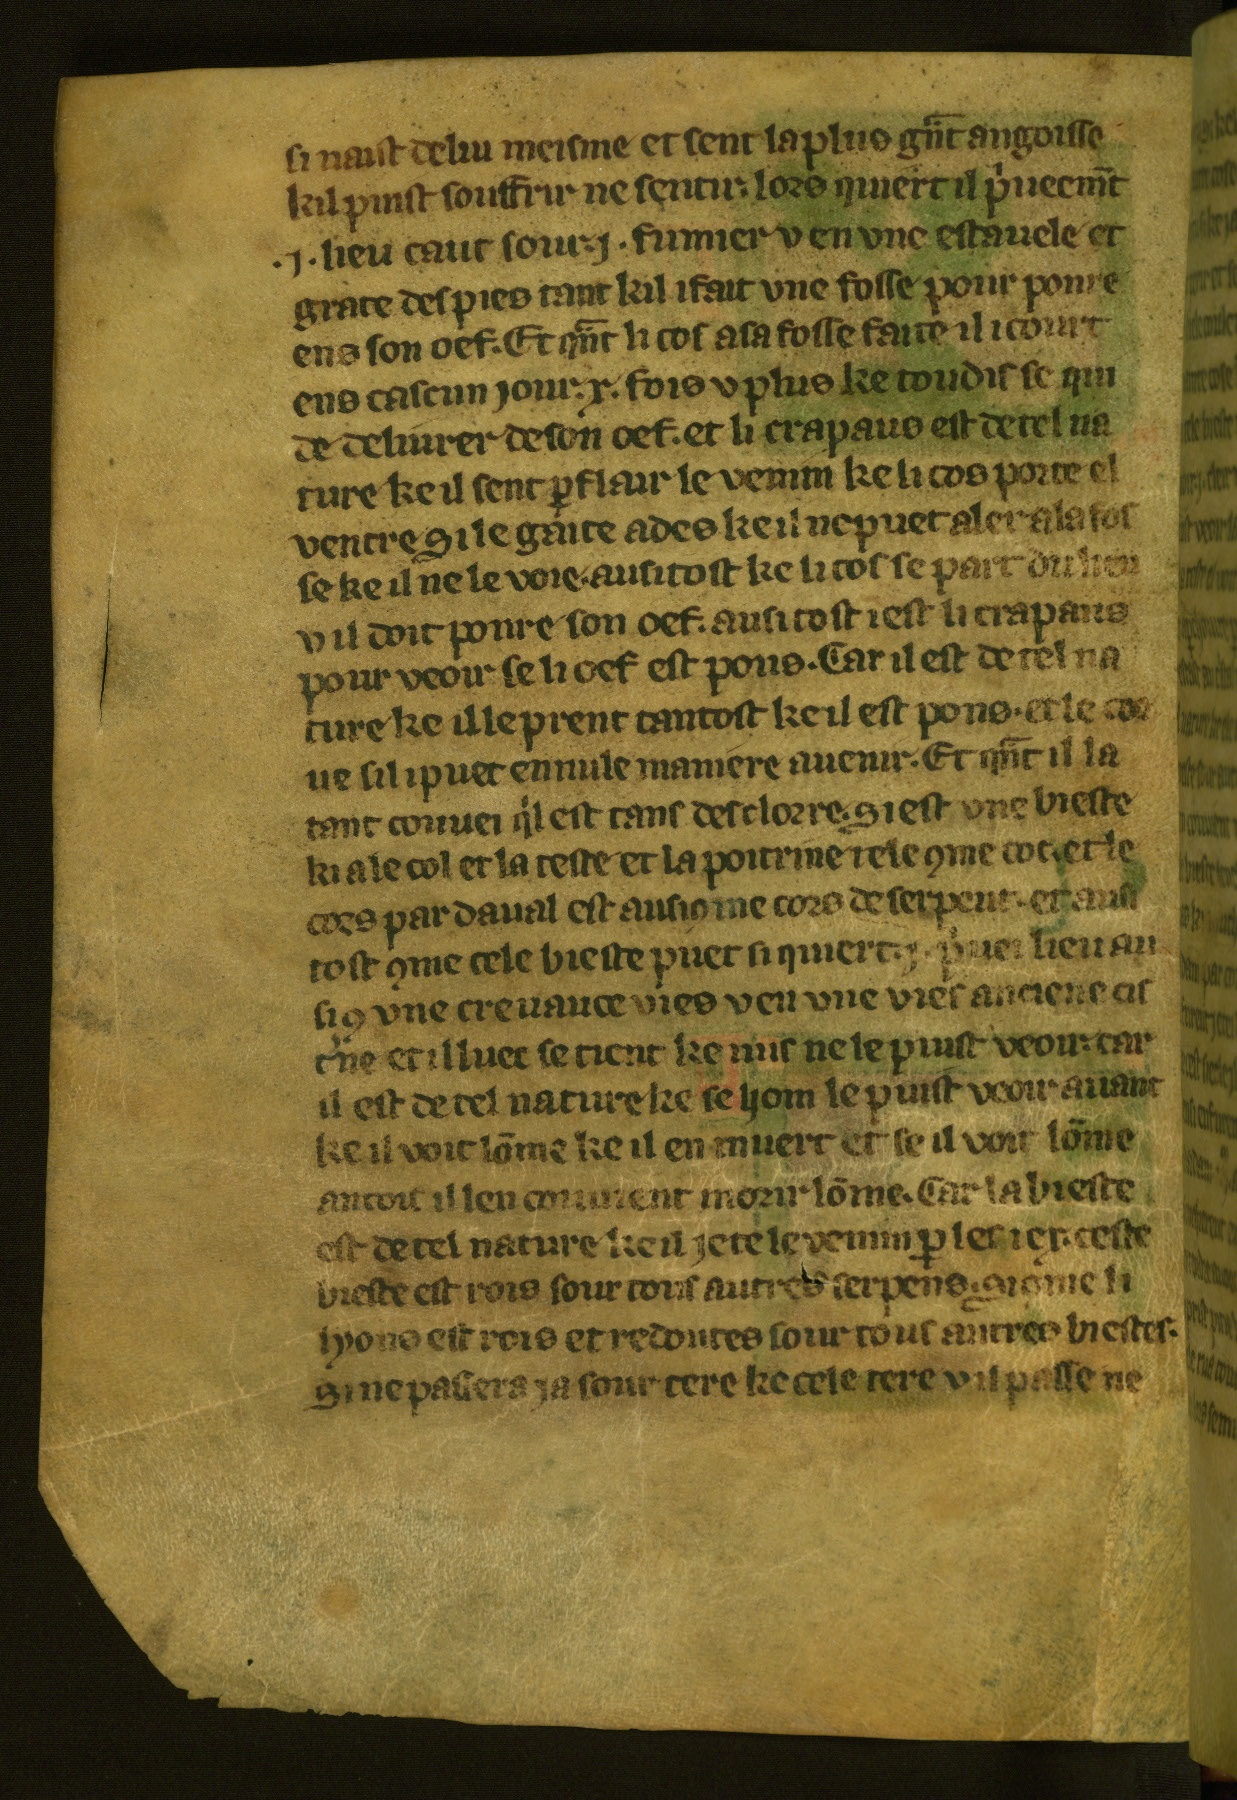 si naist de lui meisme et sent la plus gn̄t angoisse
kil puist souffrir ne sentir. lors quiert il p̍ueemt̄
.j. lieu caut sour .j. fumier v en vne estauele et
grate des pies tant kil i fait vne fosse pour ponre
ens son oef. Et qn̄t li cos a sa fosse faite il i court
ens cascun jour .x. fois v plus ke toudis se qui
de deliurer de son oef. et li crapaus est de tel na
ture ke il sent ꝑ flair le venim ke li cos porte el
ventre si le gaite ades ke il ne puet aler a la fos
se ke il ne le voie. ausi tost ke li cos se part du lieu
v il doit ponre son oef. ausi tost i est li crapaus
pour veoir se li oef est pons. Car il est de tel na
ture ke il le prent tantost ke il est pons. et le coe
ue sil i puet en nule maniere auenir. Et qn̄t il la
tant couuei q̍l est tans desclorre. si est vne bieste
ki a le col et la teste et la poitrine tele ꝯme coc. et le
cors par daual est ausi ꝯme cors de serpent. et ausi
tost ꝯme cele bieste puet si quiert .j. p̍uei lieu au
si ꝯ vne creuauce vies v en vne vies anciene cis
t̾ne et illuec se tient ke nus ne le puist veoir. car
il est de tel nature ke se hom le puist veoir auant
ke il voit lōme ke il en muert et se il voit lōme
ancois il len couuient morir lōme. Car la bieste
est de tel nature ke il jete le venim ꝑ les iex. ceste
bieste est rois sour tous autres serpens. si ꝯme li
lyons est rois et redoutes sour tous autres biestes.
si ne passera ja sour tere ke cele tere v il passe ne